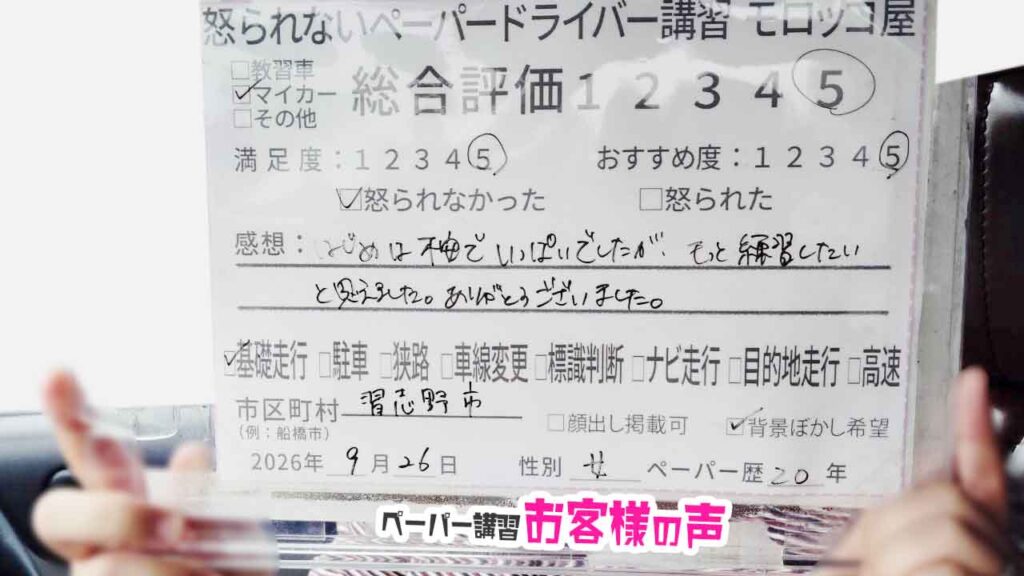 怒られないペーパードライバー講習 モロッコ屋
□教習車
☑マイカー
□その他
総合評価 1 2 3 4 5
満足度：1 2 3 4 5
おすすめ度：1 2 3 4 5
☑怒られなかった □怒られた
感想：はじめは怖でいっぱいでしたが、もっと練習したい
と思えました。ありがとうございました。
☑基礎走行 □駐車 □狭路 □車線変更 □標識判断 □ナビ走行 □目的地走行 □高速
市区町村 習志野市
（例：船橋市）
□顔出し掲載可 ☑背景ぼかし希望
2026年 9月26日 性別 女 ペーパー歴20年
ペーパー講習 お客様の声